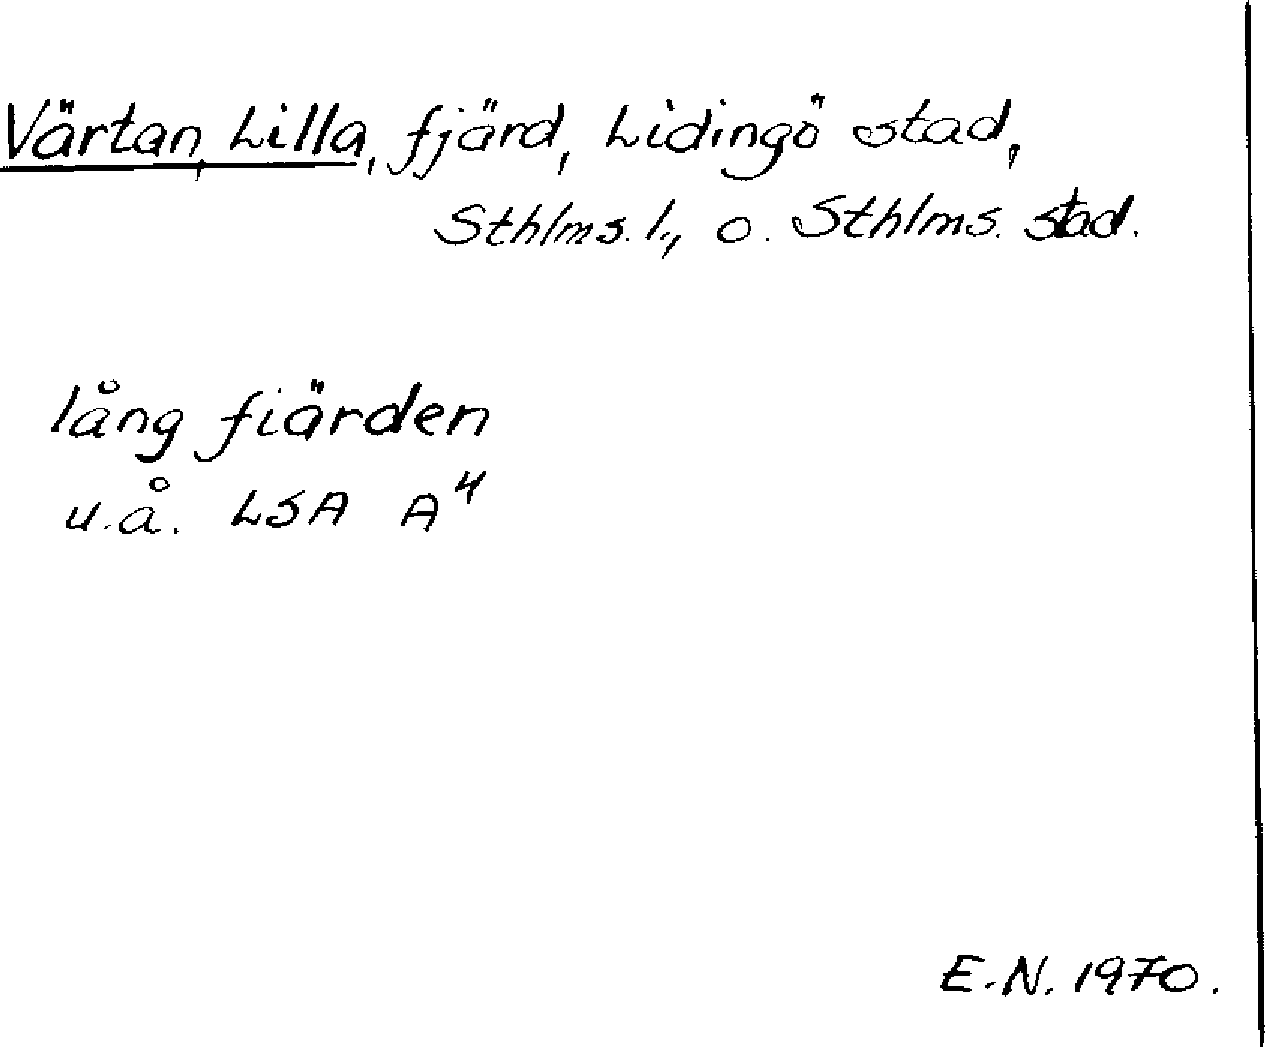 Värtan, Lilla, fjärd, Lidingö stad,
Sthlms. l., o. Sthlms. stad.
lång fiärden
u.å. LSA A⁴
E.N. 1970.